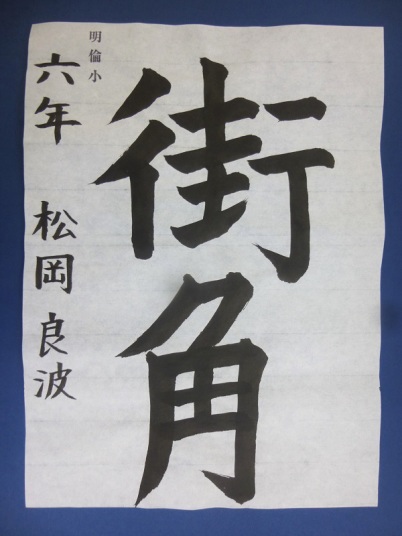 街角
明倫小
六年 松岡良波